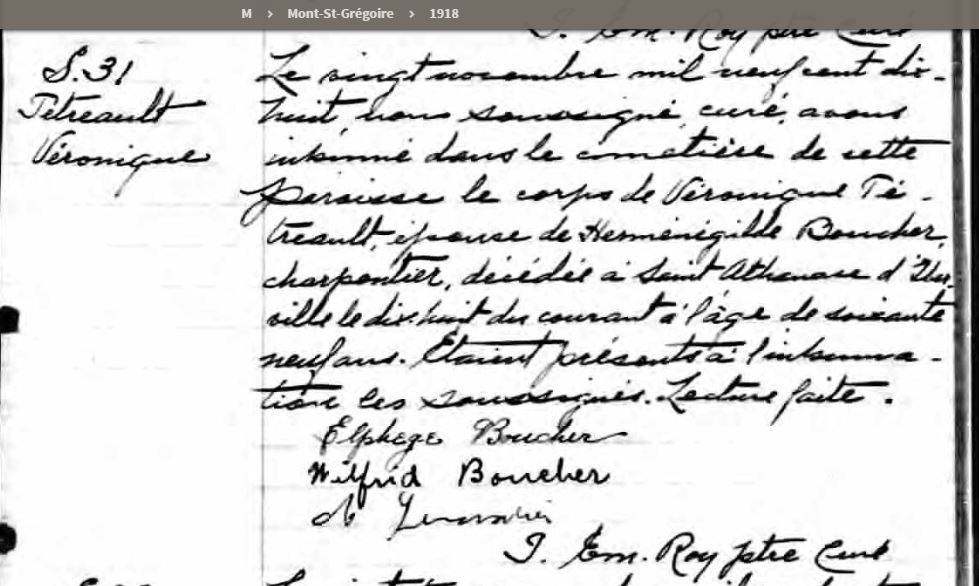 M > Mont-St-Grégoire > 1918
J. Em. Roy ptre Curé
S. 31
Tétreault
Véronique
Le vingt novembre mil neuf cent dix-
huit, nous soussigné, curé, avons
inhumé dans le cimetière de cette
paroisse le corps de Véronique Té-
treault, épouse de Herménégilde Boucher,
charpentier, décédée à Saint Athanase d'Iber-
ville le dix-huit du courant à l'âge de soixante
neuf ans. Etaient présents à l'inhuma-
tion les soussignés. Lecture faite.
Elphege Boucher
Wilfrid Boucher
J. Em. Roy ptre Curé